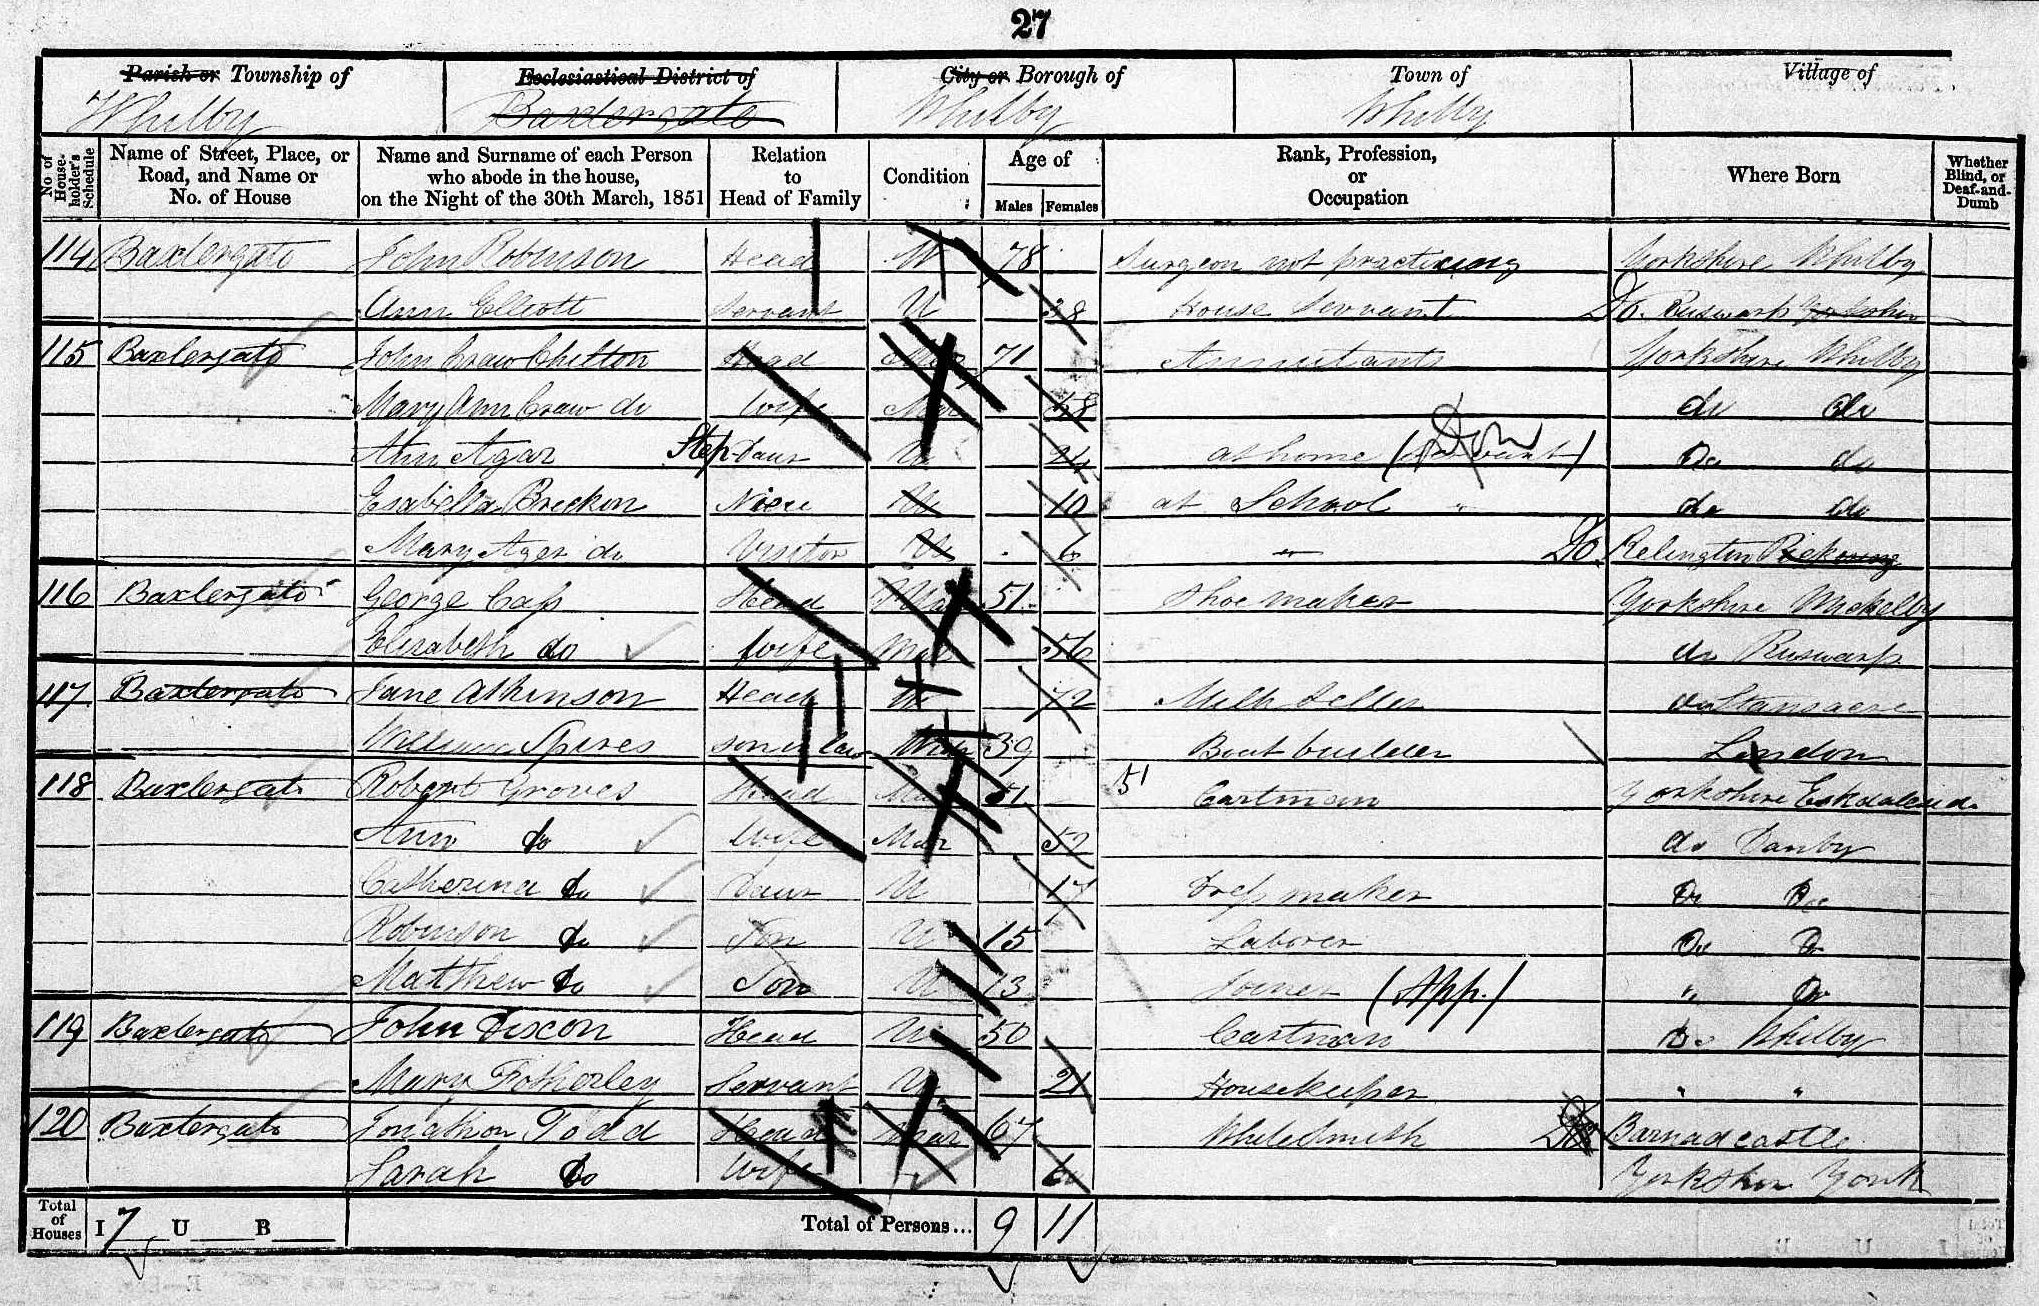 27
Parish or Township of Ecclesiastical District of City or Borough of Town of Village of
Whitby Baxtergate Whitby Whitby
No. of House-holder's Schedule
Name of Street, Place, or Road, and Name or No. of House
Name and Surname of each Person who abode in the house, on the Night of the 30th March, 1851
Relation to Head of Family
Condition
Age of
Males Females
Rank, Profession, or Occupation
Where Born
Whether Blind, or Deaf-and-Dumb
114 Baxtergate John Robinson Head W 78 Surgeon not practising Yorkshire Whitby
Ann Elliott Servant U 38 House Servant Do. Ruswarp Yorkshire
115 Baxtergate John Craw Chilton Head Mar 71 Annuitant Yorkshire Whitby
Mary Ann Craw do Wife Mar do do
Ann Agar Step-Daur U 24 at home (Dom) Do do
Esabella Breckon Niece U 10 at School do do
Mary Ager do Visitor U 6 " Do. Relington Pickering
116 Baxtergate George Cass Head Mar 51 Shoe maker Yorkshire Mickelby
Elisabeth do Wife Mar 56 do Ruswarp
117 Baxtergate Jane Atkinson Head W 72 Milk Seller do Stansacre
William Spires son in law 39 Boat builder London
118 Baxtergate Robert Groves Head Mar 51 51 Cartman Yorkshire Eskdaleside
Ann do Wife Mar 52 do Danby
Catherina do Daur U 17 Dress maker Do Do
Robinson do Son U 15 Laborer Do Do
Matthew do Son U 13 Joiner (App.) " Do
119 Baxtergate John Dixon Head U 50 Cartman Do Whitby
Mary Fotherley Servant U 21 Housekeeper " "
120 Baxtergate Jonathon Todd Head Mar 67 Whitesmith Barnadcastle
Sarah Do Wife Yorkshire York
Total of Houses I 7 U B Total of Persons... 9 11